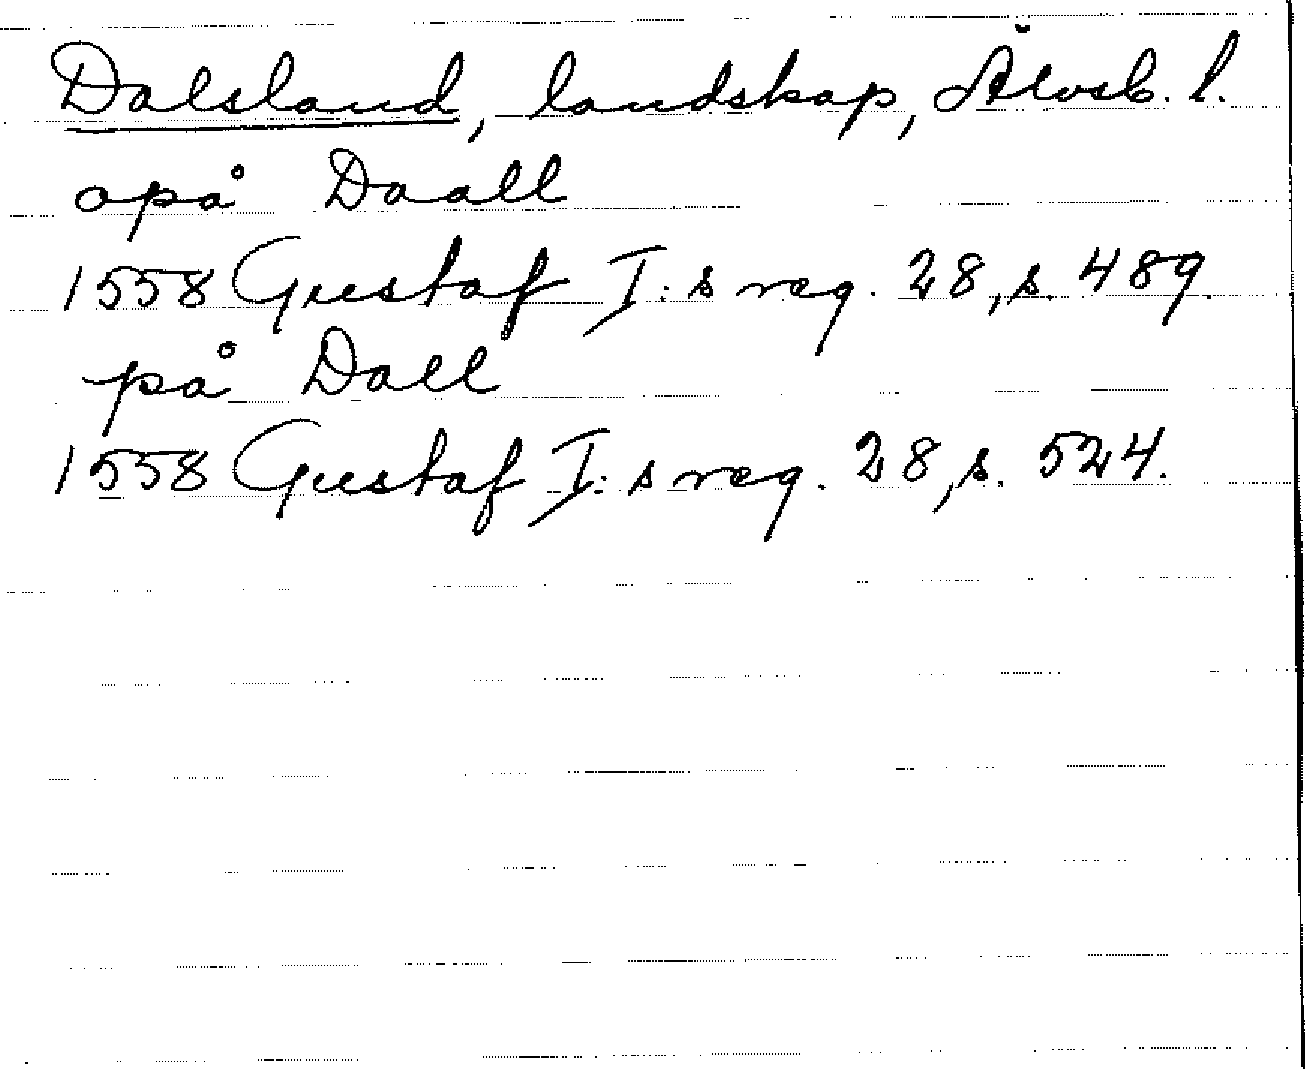 Dalsland, landskap, Älvsb. l.
opå Daall
1558 Gustaf I:s reg. 28, s. 489.
på Dall
1558 Gustaf I:s reg. 28, s. 524.